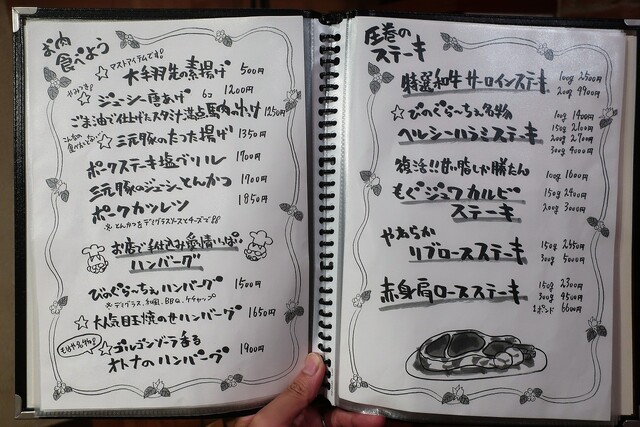 お肉
食べよう
マストアイテムです!
☆大手羽先の素揚げ 500円
やみつき!
☆ジューシー唐あげ 6コ 1200円
ごま油で仕上げたスタミナ満点馬肉のユッケ 1250円
☆三元豚のたつた揚げ 1350円
ポークステーキ塩グリル 1700円
三元豚のジューシーとんかつ 1700円
ポークカツレツ 1850円
※とんかつをデミグラスソースとチーズで!!
お店で仕込み愛情いっぱい
ハンバーグ
びのぐらーちぇハンバーグ 1500円
※デミグラス、和風、BBQ、ケチャップ
☆大人気目玉焼のせハンバーグ 1650円
☆ゴルゴンゾーラ香る
オトナのハンバーグ 1900円
圧巻の
ステーキ
特選和牛サーロインステーキ 100g 2500円
200g 4900円
☆びのぐらーちぇ名物 100g 1400円
ヘルシーハラミステーキ 150g 2100円
200g 2700円
300g 4000円
復活!!甘い脂しか勝たん
もぐジュワカルビ
ステーキ
100g 1600円
150g 2400円
200g 3000円
やわらか
リブロースステーキ 150g 2650円
300g 5000円
赤身肩ロースステーキ 150g 2300円
300g 4500円
1ポンド 6600円